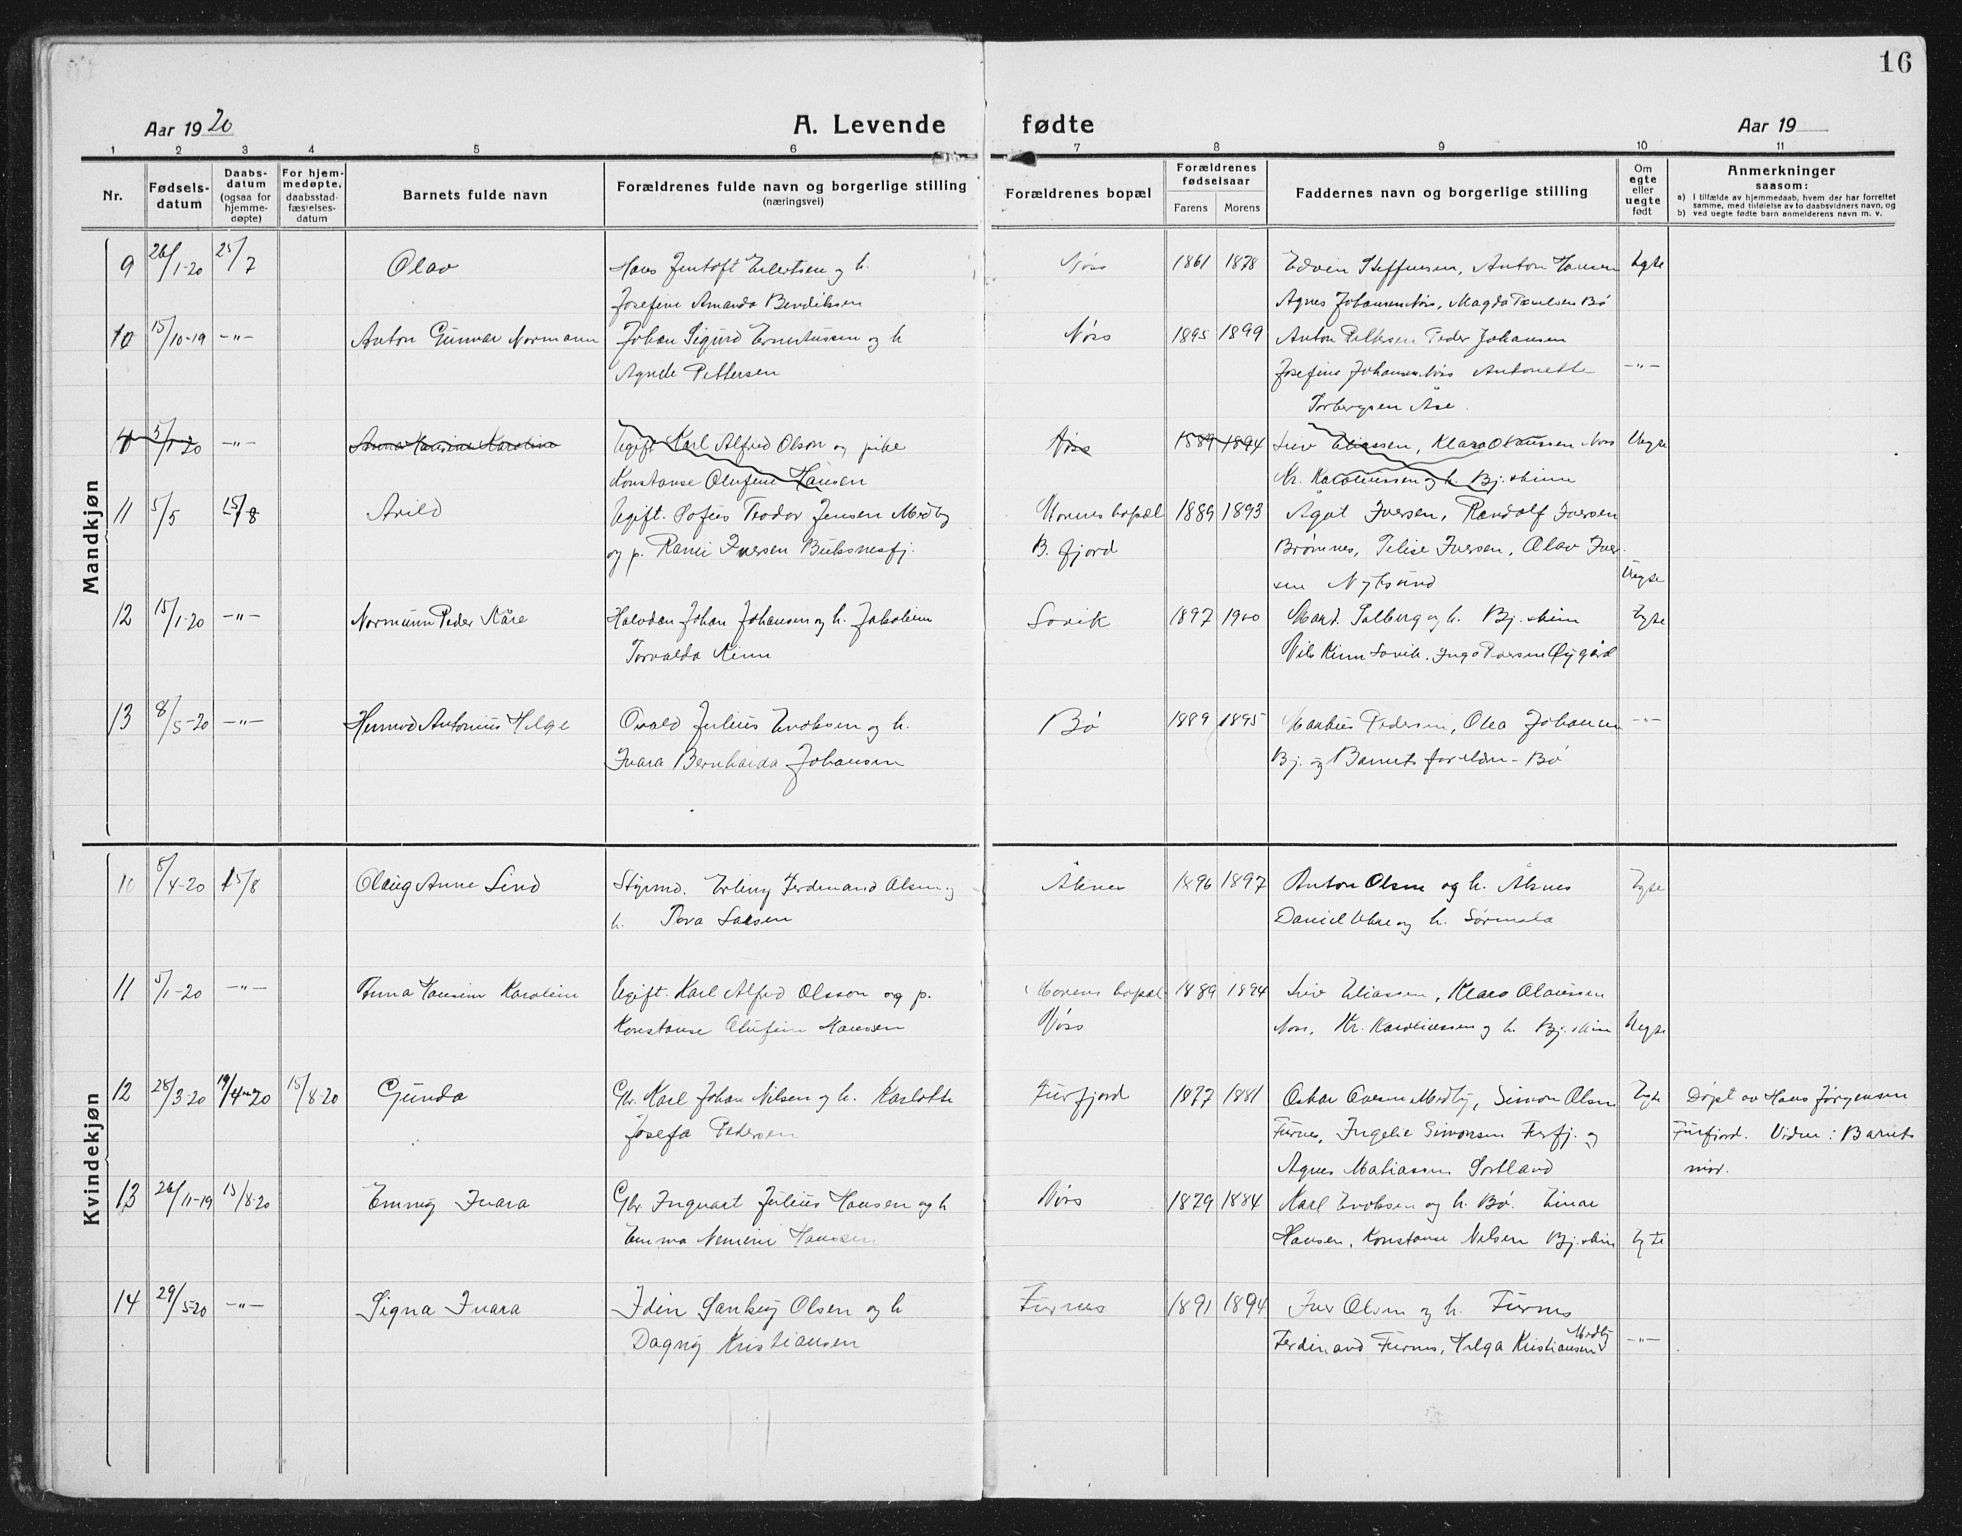 16
Aar 1920 A. Levende fødte Aar 19
1 2 3 4 5 6 7 8 9 10 11
Nr. Fødsels-datum Daabs-datum (ogsaa for hjemme-døpte) For hjem-medøpte, daabsstad-fæstelses-datum Barnets fulde navn Forældrenes fulde navn og borgerlige stilling (næringsvei) Forældrenes bopæl Forældrenes fødselsaar Farens Morens Faddernes navn og borgerlige stilling Om egte eller uegte født Anmerkninger saasom:
a) i tilfælde av hjemmedaab, hvem der har forrettet samme, med tilføielse av to daabsvidners navn, og
b) ved uegte fødte barn anmelderens navn m. v.
Mandkjøn
9 26/1-20 25/7 Olav Hans Jentoft Eilertsen og h. Nøss 1861 1878 Edvin Steffensen, Anton Hansen Egte
Josefine Amanda Bendiksen Agnes Johansen Nøss, Magda Paulsen Bø
10 15/10-19 -"- Anton Gunnar Normann Johan Sigurd Ernstussen og h Nøss 1895 1899 Anton Pettersen Peder Johansen
Agnete Pettersen Josefine Johansen Nøss Antonette -"-
Torbergsen Åse.
5/1-20 -"- Anna Hansine Karoline Ugift Karl Alfred Olson og pike Nøss 1889 1894 Eliassen, Klara Olaussen Nøss Uegte
Konstanse Olufine Hansen Kr. Karoliussen og h. Bj.skinn
11 5/5 15/8 Arild Ugift. Sofus Teodor Jensen Medby Morens bopæl 1889 1893 Ågot Iversen, Randolf Iversen
og p. Iversen Buksnesfj. B. fjord Brømnes, Iversen, Olav Iver-
sen Nyksund Uegte
12 15/1-20 -"- Normann Peder Kåre Halvdan Johan Johansen og h. Jakobine Sovik 1897 1900 Solberg og h. Bj.skinn Egte
Torvalda Kinn Nils Kinn Sovik, Inga Øygård
13 8/5-20 -"- Antonius Helge Osvald Julius Evoksen og h. Bø 1889 1895 Markus Pedersen, Olea Johansen -"-
Ivara Bernharda Johansen Bj. og Barnets foreldre - Bø
Kvindekjøn
10 8/4-20 15/8 Olaug Anne Lind Styrmd. Erling Ferdinand Olsen og Åknes 1896 1897 Anton Olsen og h. Åknes Egte
h. Tora Larsen Daniel og h. Sørmela
11 5/1-20 -"- Anna Hansine Karoline Ugift. Karl Alfred Olsson og p. Morens bopæl 1889 1894 Eliassen, Klara Olaussen
Konstanse Olufine Hanssen Nøss Nøss, Kr. Karoliussen og h. Bj.skinn Uegte
12 28/3-20 19/4-20 15/8-20 Gunda Gbr. Karl Johan Nilsen og h. Karlotte Furfjord 1877 1881 Oskar Medby, Simon Olsen Egte Døpt av Hans Jørgensen
Josefa Pedersen Furnes, Ingelie Simonsen Furfj. og Furfjord. Vidne: Barnets
Agnes Matiassen Sortland mor.
13 26/11-19 15/8-20 Emmy Ivara Gbr. Ingvart Julius Hansen og h Nøss 1879 1884 Karl Evoksen og h. Bø. Einar
Emma Hansen Hansen, Konstanse Nilsen Bj.skinn Egte
14 29/5-20 -"- Signa Ivara Idin Sankey Olsen og h Furnes 1891 1894 Iver Olsen og h. Furnes
Dagny Kristiansen Ferdinand Furnes, Helga Kristiansen Medby -"-